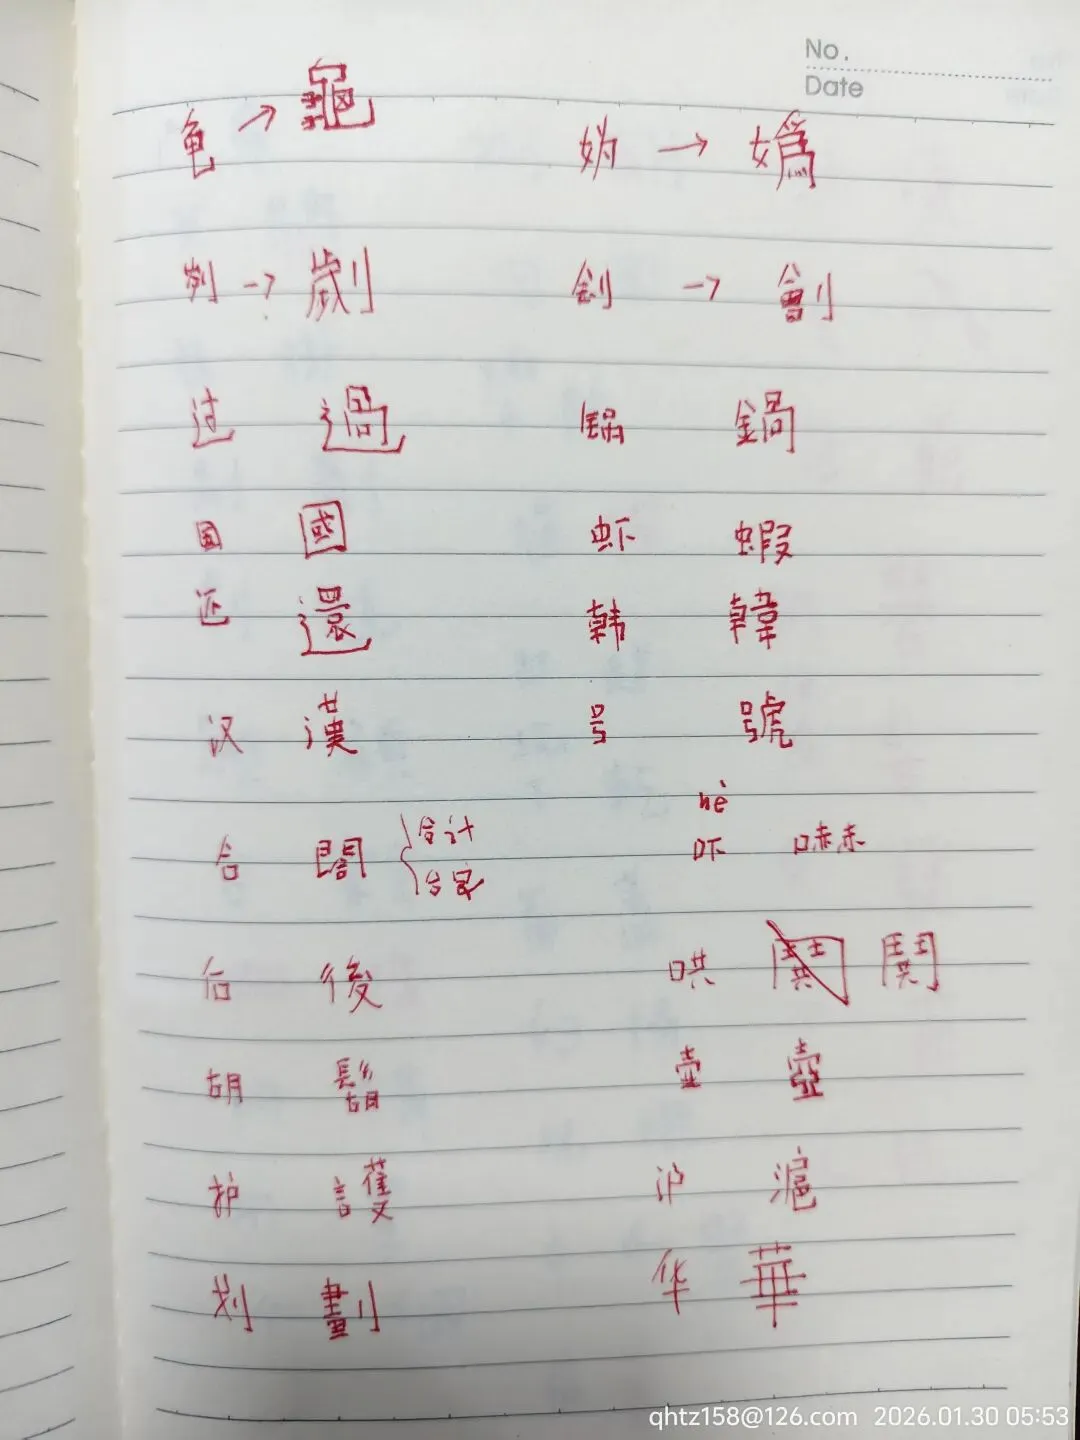 No.
Date
龟 → 龜 妫 → 嬀
刿 → 劌 刽 → 劊
过 過 锅 鍋
国 國 虾 蝦
还 還 韩 韓
汉 漢 号 號
hè
合 閤 合计 吓 嚇
合家
后 後 哄 鬨 鬨
胡 鬍 壶 壺
护 護 沪 滬
划 劃 华 華
qhtz158@126.com 2026.01.30 05:53